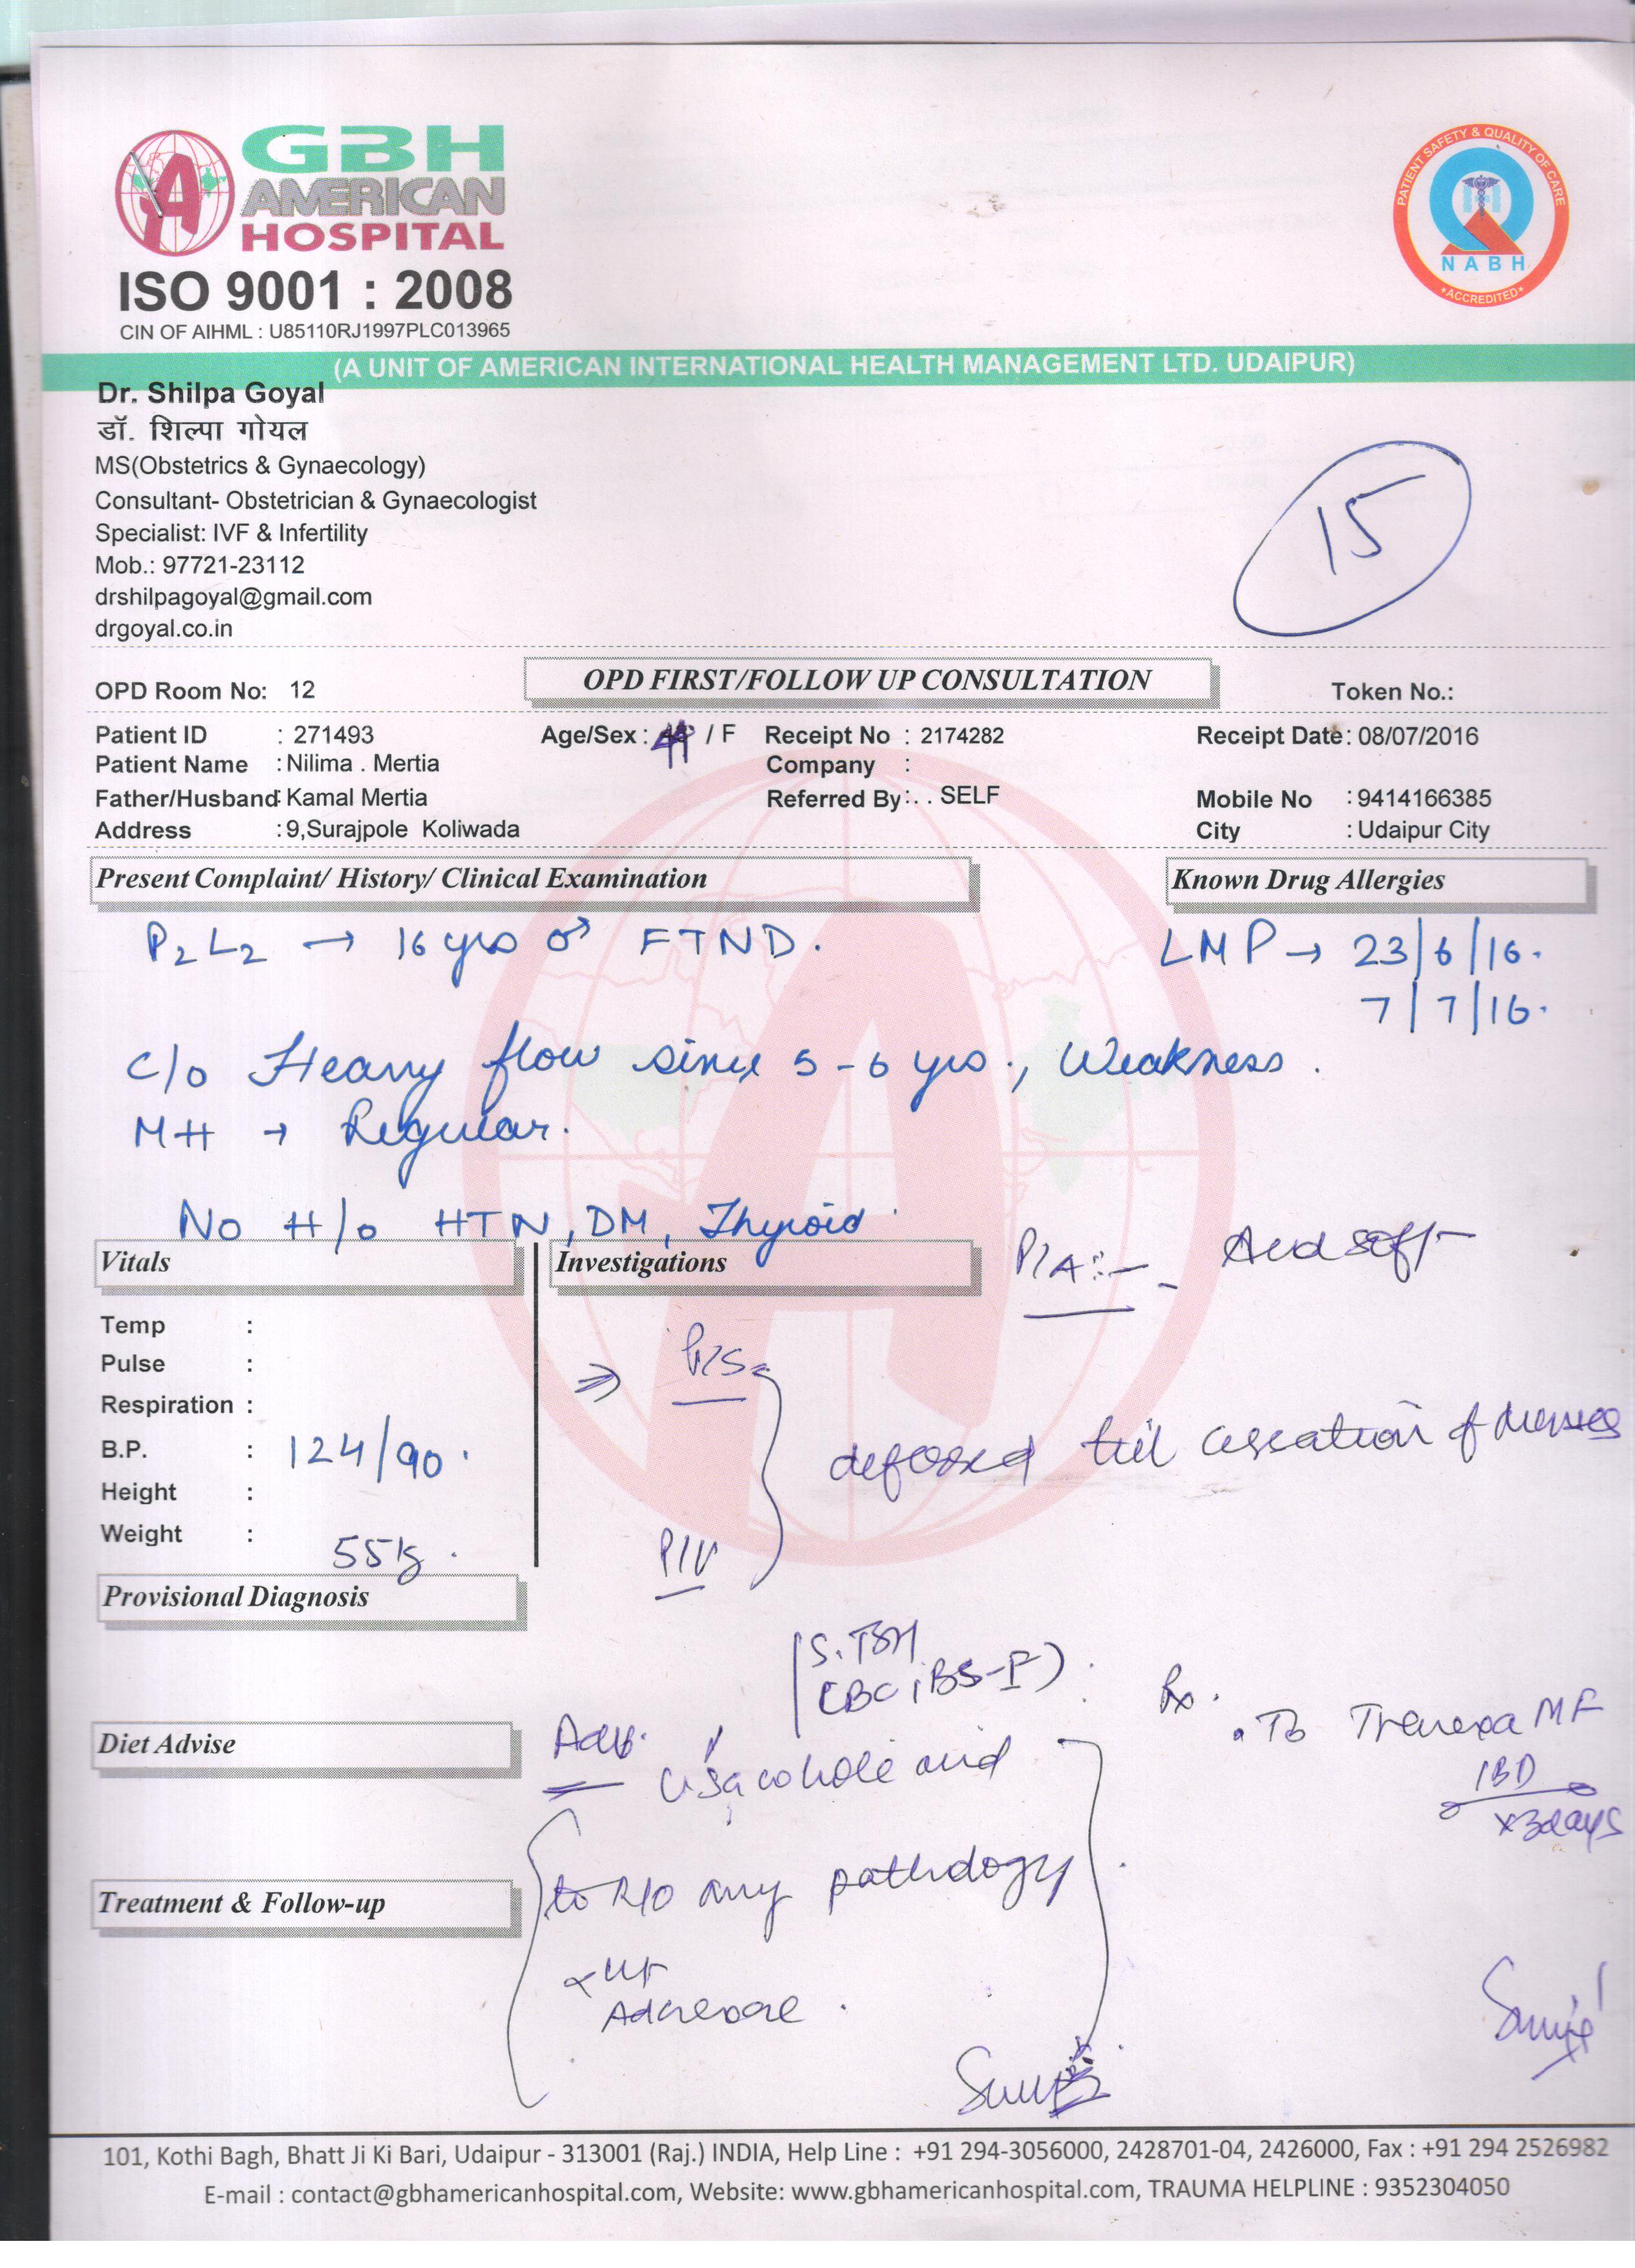 GBH
AMERICAN
HOSPITAL
ISO 9001 : 2008
CIN OF AIHML : U85110RJ1997PLC013965
PATIENT SAFETY & QUALITY OF CARE
NABH
ACCREDITED
(A UNIT OF AMERICAN INTERNATIONAL HEALTH MANAGEMENT LTD. UDAIPUR)
Dr. Shilpa Goyal
डॉ. शिल्पा गोयल
MS(Obstetrics & Gynaecology)
Consultant- Obstetrician & Gynaecologist
Specialist: IVF & Infertility
Mob.: 97721-23112
drshilpagoyal@gmail.com
drgoyal.co.in
15
OPD Room No: 12 OPD FIRST/FOLLOW UP CONSULTATION Token No.:
Patient ID : 271493 Age/Sex : / F Receipt No : 2174282 Receipt Date: 08/07/2016
Patient Name : Nilima . Mertia Company :
Father/Husband: Kamal Mertia Referred By: . . SELF Mobile No : 9414166385
Address : 9,Surajpole Koliwada City : Udaipur City
Present Complaint/ History/ Clinical Examination Known Drug Allergies
P2L2 → 16 yrs ♂ FTND. LMP → 23/6/16.
7/7/16.
C/o Heavy flow since 5-6 yrs., Weakness.
MH → Regular.
No H/o HTN, DM, Thyroid
Vitals Investigations P/A:- soft
Temp :
Pulse : P/S
Respiration :
B.P. : 124/90. till cessation of menses
Height :
Weight : 55kg. P/V
Provisional Diagnosis
S.TSH
CBC, BS-F) Rx.
Diet Advise Adv. MF
1BD
x3days
Treatment & Follow-up to R/O any pathology
101, Kothi Bagh, Bhatt Ji Ki Bari, Udaipur - 313001 (Raj.) INDIA, Help Line : +91 294-3056000, 2428701-04, 2426000, Fax : +91 294 2526982
E-mail : contact@gbhamericanhospital.com, Website: www.gbhamericanhospital.com, TRAUMA HELPLINE : 9352304050